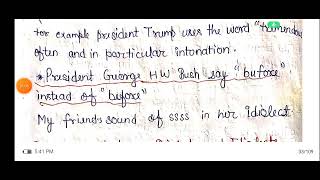 for example president Trump uses the word "tremendous
often and in particular intonation.
* President George HW Bush say "bufore"
instead of "before"
My friends sound of ssss in her idiolect
5:41 PM
33/109